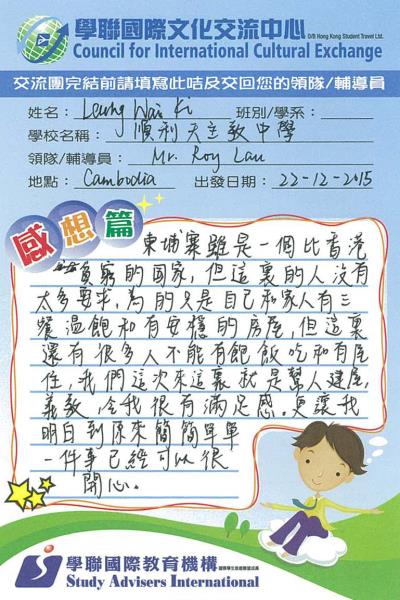 學聯國際文化交流中心 D/B Hong Kong Student Travel Ltd.
Council for International Cultural Exchange
交流團完結前請填寫此咭及交回您的領隊/輔導員
姓名: Leung Wai Ki 班別/學系:
學校名稱: 順利天主教中學
領隊/輔導員: Mr. Roy Lau
地點: Cambodia 出發日期: 22-12-2015
感想篇
柬埔寨雖是一個比香港
貧窮的國家,但這裏的人沒有
太多要求,為的只是自己和家人有三
餐溫飽和有安穩的房屋,但這裏
還有很多人不能有飽飯吃和有屋
住,我們這次來這裏就是幫人建屋,
義教,令我很有滿足感。更讓我
明白到原來簡簡單單
一件事已經可以很
開心。
學聯國際教育機構
Study Advisers International